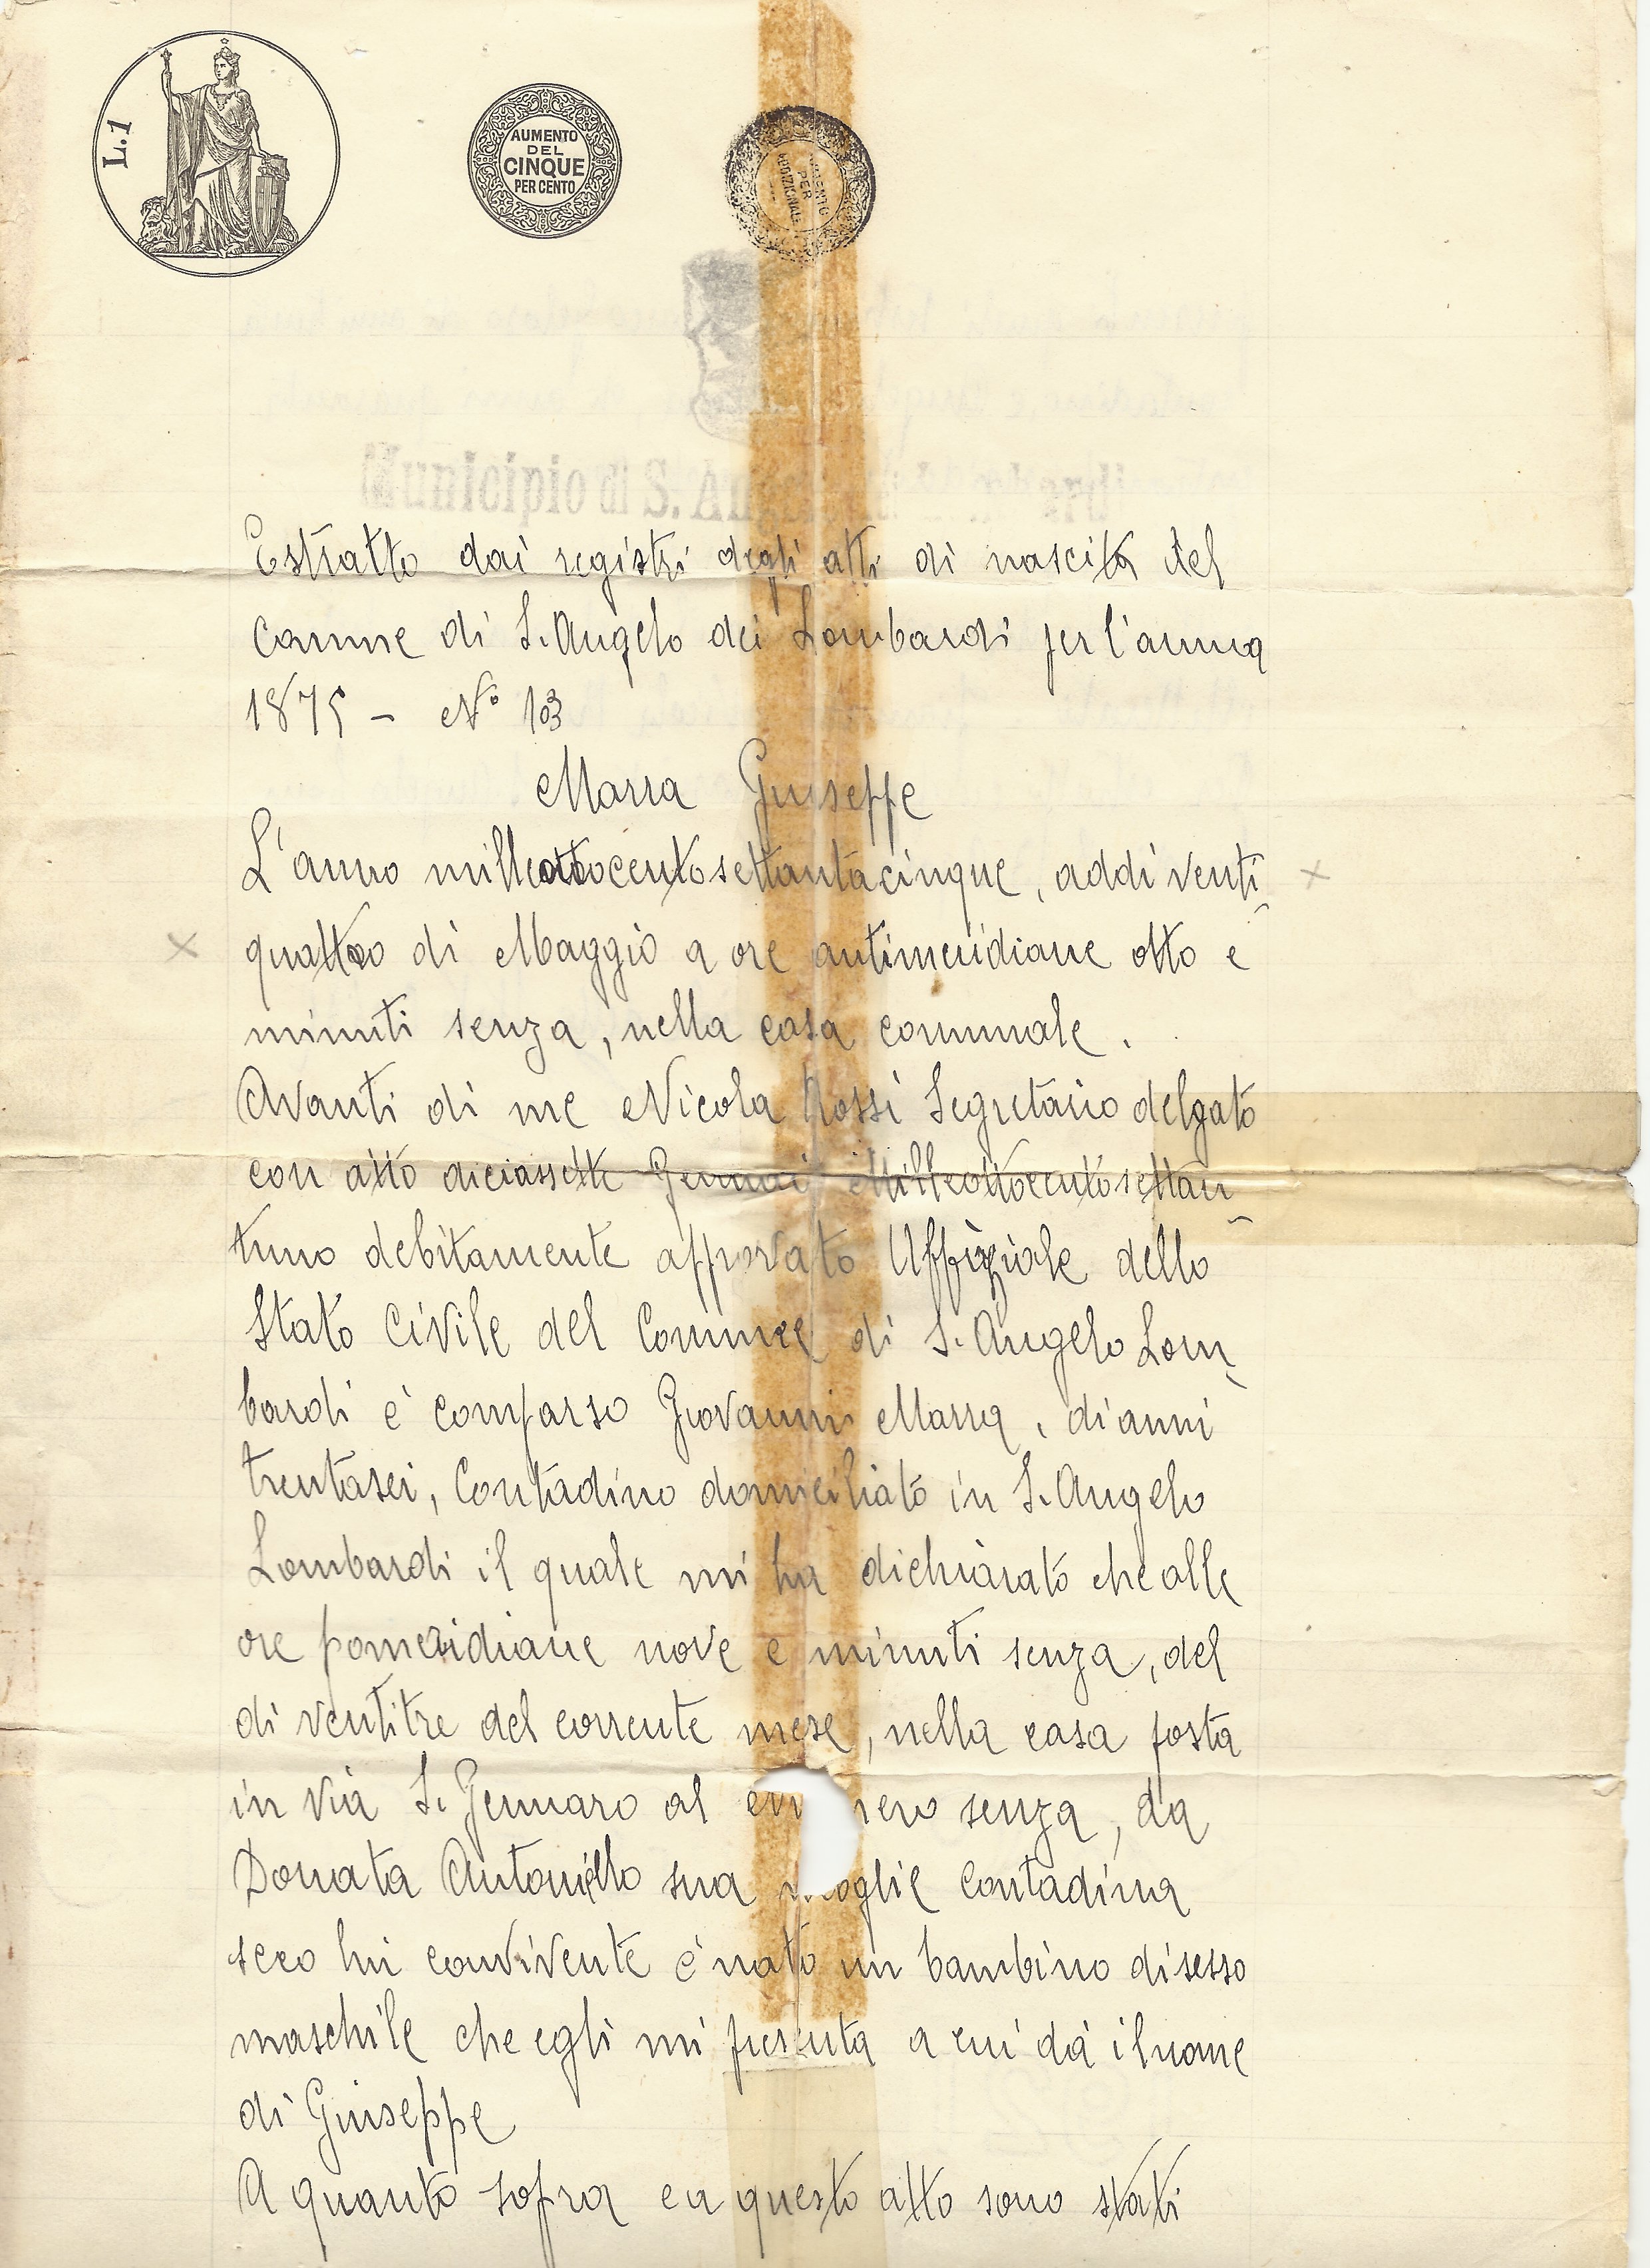 L. 1
AUMENTO
DEL
CINQUE
PER CENTO
PER
Municipio di S. An
Estratto dai registri degli atti di nascita del
Comune di S. Angelo dei Lombardi per l'anno
1875 - No 103
Marra Giuseppe
L'anno milleottocentosettantacinque, addi venti
quattro di Maggio a ore antimeridiane otto e
minuti senza, nella casa comunale.
Avanti di me Nicola Rossi Segretario delgato
con atto diciassette Gennai Milleottocentosettan
tuno debitamente approvato Uffiziale dello
Stato Civile del Comune di S. Angelo Lom
bardi è comparso Giovanni Marra, di anni
trentasei, Contadino domiciliato in S. Angelo
Lombardi il quale mi ha dichiarato che alle
ore pomeridiane nove e minuti senza, del
di ventitre del corrente mese, nella casa posta
in via S. Gennaro al senza, da
Donata Antoniello sua moglie Contadina
seco lui convivente è nato un bambino di sesso
maschile che egli mi presenta a cui dà il nome
di Giuseppe
A quanto sopra e a questo atto sono stati